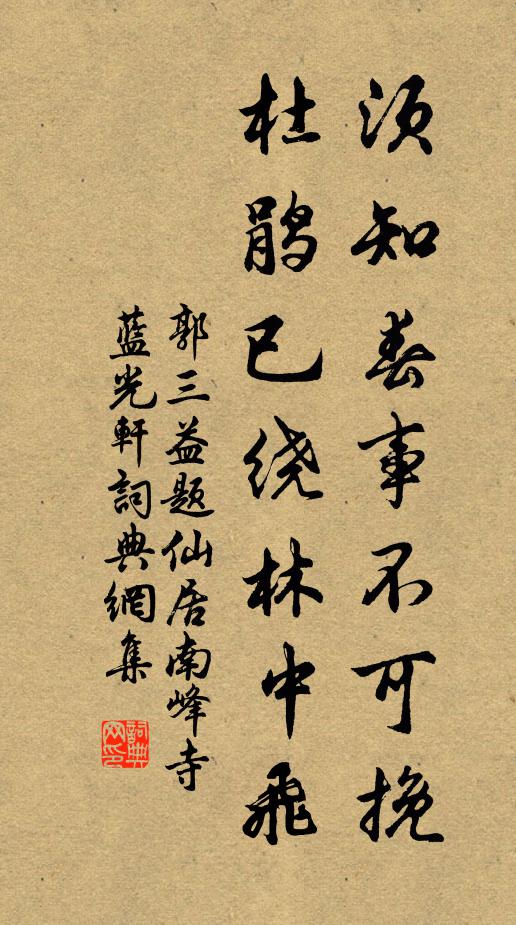 须知春事不可挽
杜鹃已绕林中飛
郭三益题仙居南峰寺
藍光軒詞典網集
詞典
网印